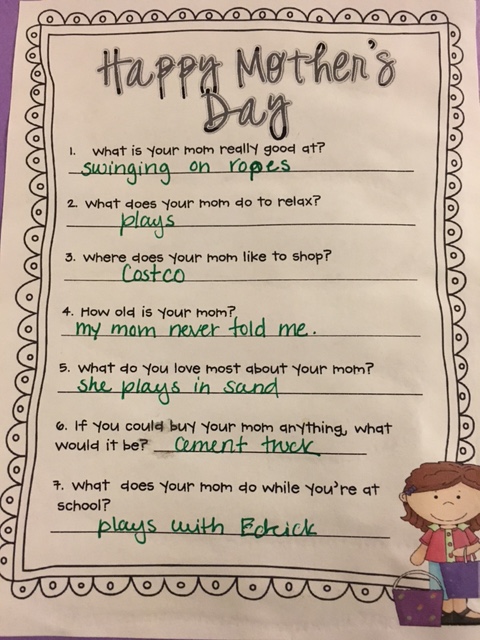 Happy Mother's
Day
1. What is your mom really good at?
swinging on ropes
2. What does your mom do to relax?
plays
3. Where does your mom like to shop?
Costco
4. How old is your mom?
my mom never told me.
5. What do you love most about your mom?
she plays in sand
6. If you could buy your mom anything, what
would it be? cement truck
7. What does your mom do while you're at
school?
plays with Edrick